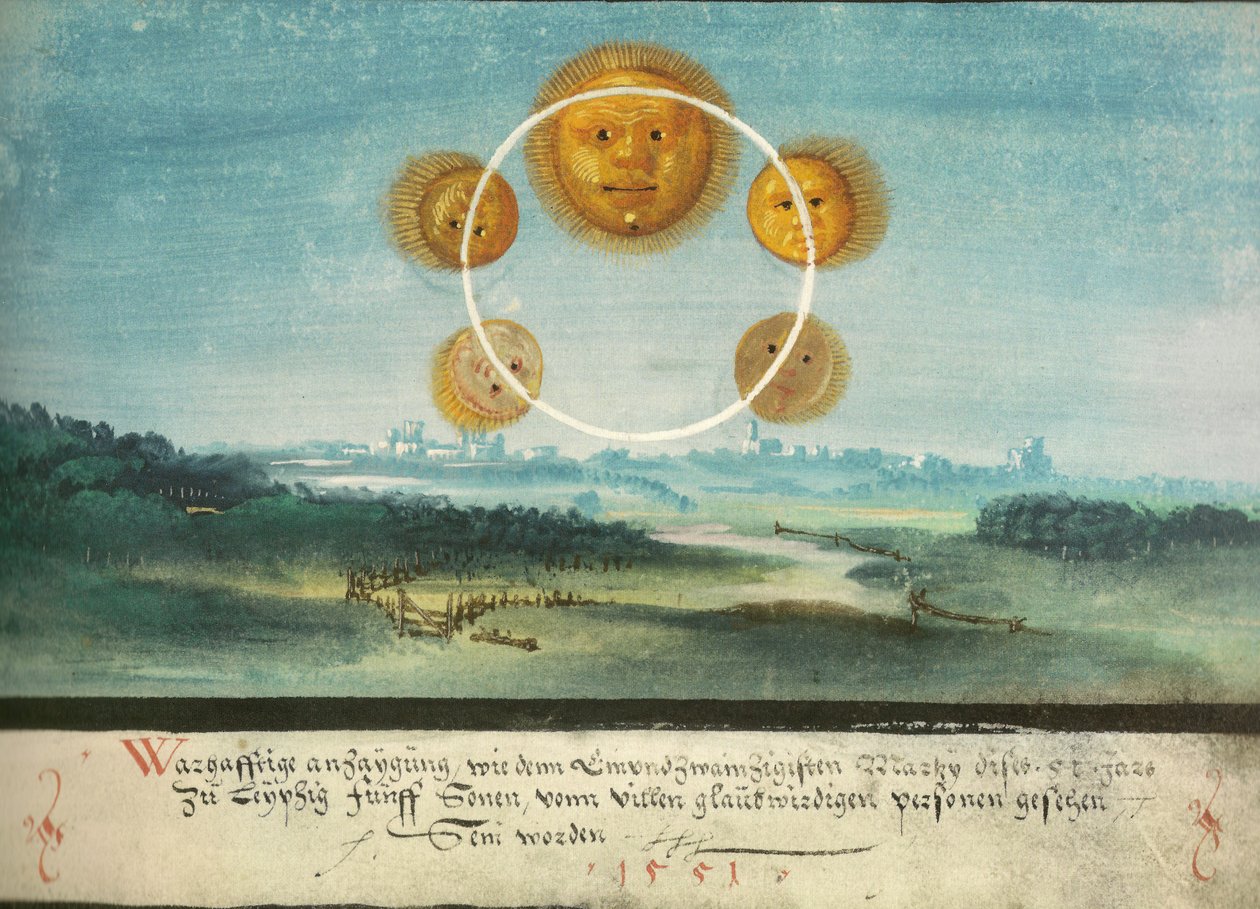 Warhafftige anzaÿgüng, wie denn Einundzwainzigisten Martzÿ dises. 51. Jars
Zü Leÿpzig fünff Sonen, vonn villen glaübwirdigen personen gesehen
Sein worden
1551